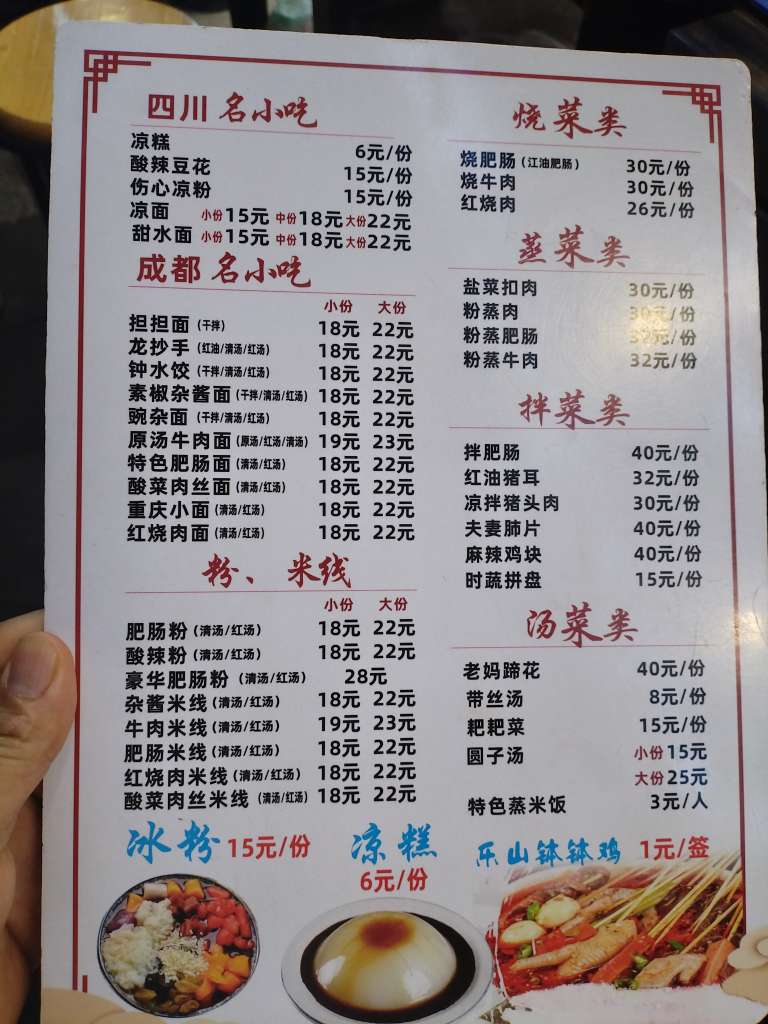 四川名小吃
凉糕 6元/份
酸辣豆花 15元/份
伤心凉粉 15元/份
凉面 小份15元 中份18元 大份22元
甜水面 小份15元 中份18元 大份22元
成都名小吃
小份 大份
担担面（干拌） 18元 22元
龙抄手（红油/清汤/红汤） 18元 22元
钟水饺（干拌/清汤/红汤） 18元 22元
素椒杂酱面（干拌/清汤/红汤） 18元 22元
豌杂面（干拌/清汤/红汤） 18元 22元
原汤牛肉面（原汤/红汤/清汤） 19元 23元
特色肥肠面（清汤/红汤） 18元 22元
酸菜肉丝面（清汤/红汤） 18元 22元
重庆小面（清汤/红汤） 18元 22元
红烧肉面（清汤/红汤） 18元 22元
粉、米线
小份 大份
肥肠粉（清汤/红汤） 18元 22元
酸辣粉（清汤/红汤） 18元 22元
豪华肥肠粉（清汤/红汤） 28元
杂酱米线（清汤/红汤） 18元 22元
牛肉米线（清汤/红汤） 19元 23元
肥肠米线（清汤/红汤） 18元 22元
红烧肉米线（清汤/红汤） 18元 22元
酸菜肉丝米线（清汤/红汤） 18元 22元
烧菜类
烧肥肠（江油肥肠） 30元/份
烧牛肉 30元/份
红烧肉 26元/份
蒸菜类
盐菜扣肉 30元/份
粉蒸肉 30元/份
粉蒸肥肠 32元/份
粉蒸牛肉 32元/份
拌菜类
拌肥肠 40元/份
红油猪耳 32元/份
凉拌猪头肉 30元/份
夫妻肺片 40元/份
麻辣鸡块 40元/份
时蔬拼盘 15元/份
汤菜类
老妈蹄花 40元/份
带丝汤 8元/份
耙耙菜 15元/份
圆子汤 小份15元
大份25元
特色蒸米饭 3元/人
冰粉 15元/份
凉糕
6元/份
乐山钵钵鸡 1元/签